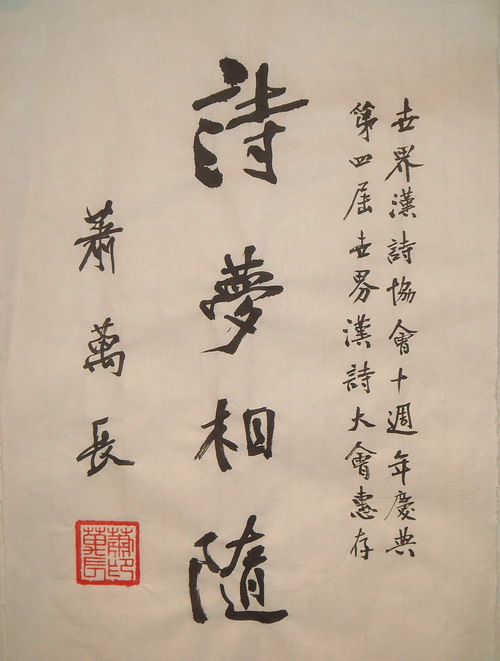 世界漢詩協會十週年慶典
第四屆世界漢詩大會惠存
詩夢相隨
蕭萬長
蕭萬長印